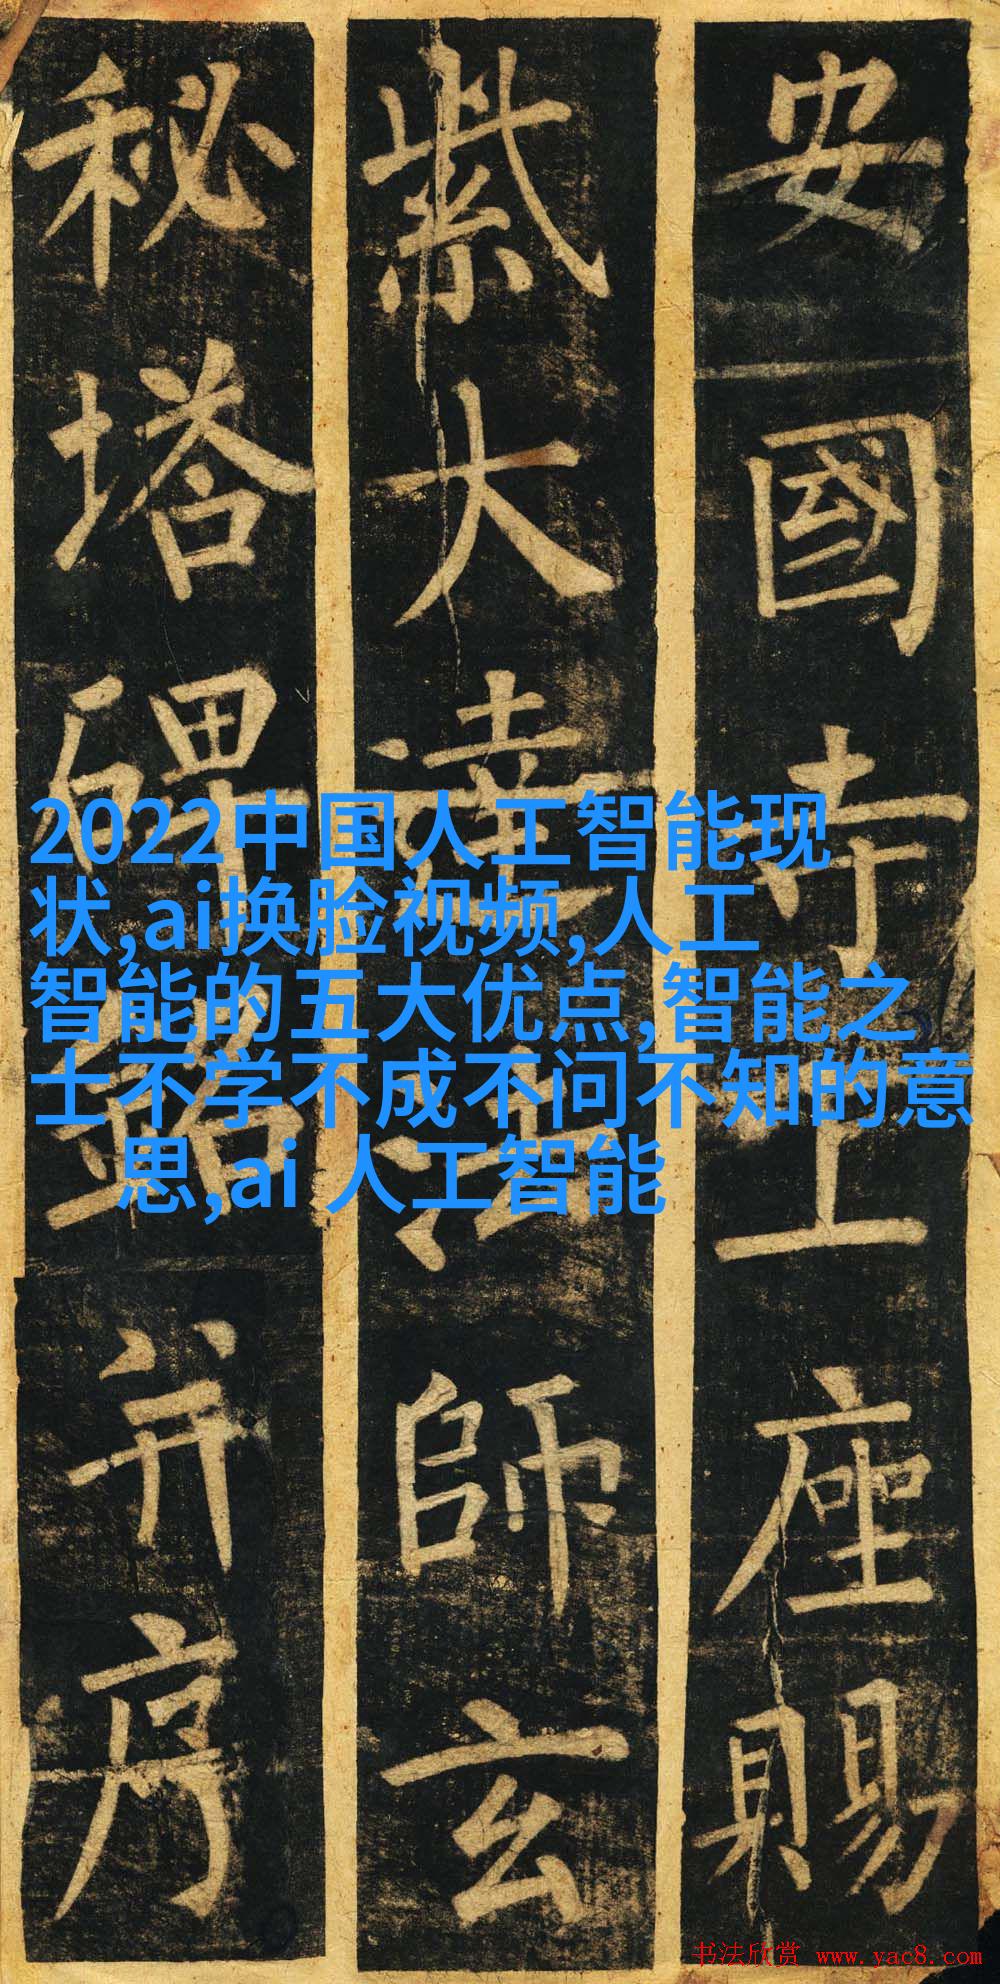 安國寺上座賜
紫大達法師玄
秘塔碑銘并序
2022中国人工智能现
状,ai换脸视频,人工
智能的五大优点,智能之
士不学不成不问不知的意
思,ai 人工智能
书法欣赏 www.yac8.com